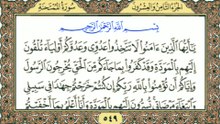 الجزء الثامن والعشرون سورة الممتحنة
بسم الله الرحمن الرحيم
يا أيها الذين ءامنوا لا تتخذوا عدوي وعدوكم أولياء تلقون
إليهم بالمودة وقد كفروا بما جاءكم من الحق يخرجون الرسول
وإياكم أن تؤمنوا بالله ربكم إن كنتم خرجتم جهادا في سبيلي
وابتغاء مرضاتي تسرون إليهم بالمودة وأنا أعلم بما أخفيتم
٥٤٩